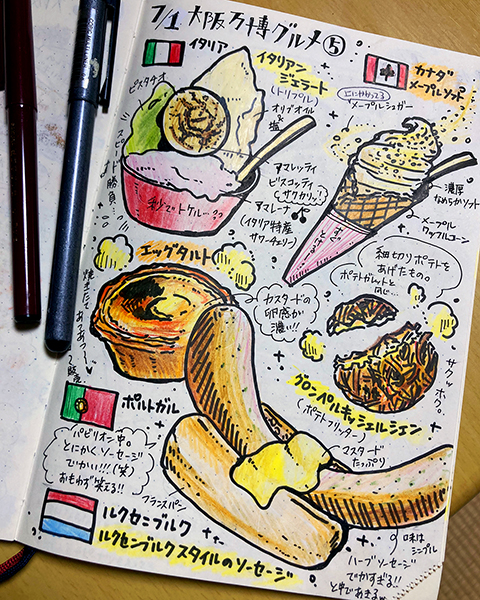 7/1 大阪万博グルメ⑤
イタリア
イタリアン
ジェラート
(トリプル)
オリブオイル
&塩
ピスタチオ
スピード勝負…
アマレッティ
ビスコッティ
サクカリッ!
アマレーナ
(イタリア特産
サワーチェリー)
秒でトケル…??
カナダ
メープルソフト
上にかかってる
メープルシュガー
濃厚
なめらかソフト
メープル
ワッフルコーン
エッグタルト
焼きたてであつあつ〜
カスタードの
卵感が
濃い!!
ポルトガル
細切りポテトを
あげたもの。
ポテトガレットと
同じ…
サクッ
ホク。
グロンペルキッシェルシェン
(ポテトフリッター)
マスタード
たっぷり
パビリオン中。
とにかくソーセージ
でかい!!!(笑)
おもわず笑える!!
フランスパン
ルクセンブルク
ルクセンブルクスタイルのソーセージ
味は
シンプル
ハーブソーセージ
でかすぎる!!